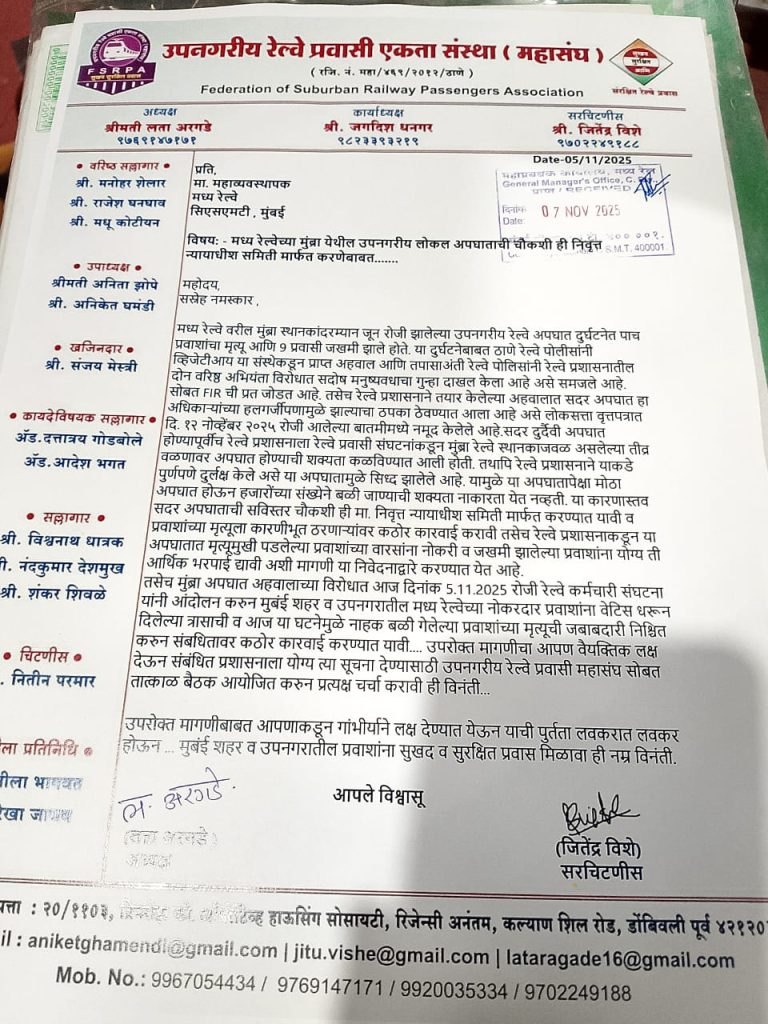 उपनगरीय रेल्वे प्रवासी एकता संस्था ( महासंघ )
( रजि. नं. महा/४६९/२०१२/ठाणे )
Federation of Suburban Railway Passengers Association
FSRPA
सुखद सुरक्षित प्रवास
संरक्षित रेल्वे प्रवास
अध्यक्ष
श्रीमती लता अरगडे
९७६९१४७१७१
कार्याध्यक्ष
श्री. जगदिश धनगर
९८२३३९३२१९
सरचिटणीस
श्री. जितेंद्र विशे
९७०२२४९१८८
• वरिष्ठ सल्लागार •
श्री. मनोहर शेलार
श्री. राजेश घनघाव
श्री. मधू कोटीयन
• उपाध्यक्ष •
श्रीमती अनिता झोपे
श्री. अनिकेत घमंडी
• खजिनदार •
श्री. संजय मेस्त्री
• कायदेविषयक सल्लागार •
ॲड.दत्तात्रय गोडबोले
ॲड.आदेश भगत
• सल्लागार •
श्री. विश्वनाथ धात्रक
नंदकुमार देशमुख
श्री. शंकर शिवळे
• चिटणीस •
नितीन परमार
प्रतिनिधि •
Date-05/11/2025
प्रति,
मा. महाव्यवस्थापक
मध्य रेल्वे
सिएसएमटी , मुंबई
General Manager's Office, C.
RECEIVED
दिनांक
Date:
07 NOV 2025
S.M.T. 400001.
विषय: - मध्य रेल्वेच्या मुंब्रा येथील उपनगरीय लोकल अपघाताची चौकशी ही निवृत्त
न्यायाधीश समिती मार्फत करणेबाबत.......
महोदय,
सस्नेह नमस्कार ,
मध्य रेल्वे वरील मुंब्रा स्थानकांदरम्यान जून रोजी झालेल्या उपनगरीय रेल्वे अपघात दुर्घटनेत पाच
प्रवाशांचा मृत्यू आणि 9 प्रवासी जखमी झाले होते. या दुर्घटनेबाबत ठाणे रेल्वे पोलीसांनी
व्हिजेटीआय या संस्थेकडून प्राप्त अहवाल आणि तपासाअंती रेल्वे पोलिसांनी रेल्वे प्रशासनातील
दोन वरिष्ठ अभियंता विरोधात सदोष मनुष्यवधाचा गुन्हा दाखल केला आहे असे समजले आहे.
सोबत FIR ची प्रत जोडत आहे. तसेच रेल्वे प्रशासनाने तयार केलेल्या अहवालात सदर अपघात हा
अधिकाऱ्यांच्या हलगर्जीपणामुळे झाल्याचा ठपका ठेवण्यात आला आहे असे लोकसत्ता वृत्तपत्रात
दि. १२ नोव्हेंबर २०२५ रोजी आलेल्या बातमीमध्ये नमूद केलेले आहे.सदर दुर्दैवी अपघात
होण्यापूर्वीच रेल्वे प्रशासनाला रेल्वे प्रवासी संघटनांकडून मुंब्रा रेल्वे स्थानकाजवळ असलेल्या तीव्र
वळणावर अपघात होण्याची शक्यता कळविण्यात आली होती. तथापि रेल्वे प्रशासनाने याकडे
पुर्णपणे दुर्लक्ष केले असे या अपघातामुळे सिध्द झालेले आहे. यामुळे या अपघातापेक्षा मोठा
अपघात होऊन हजारोंच्या संख्येने बळी जाण्याची शक्यता नाकारता येत नव्हती. या कारणास्तव
सदर अपघाताची सविस्तर चौकशी ही मा. निवृत्त न्यायाधीश समिती मार्फत करण्यात यावी व
प्रवाशांच्या मृत्यूला कारणीभूत ठरणाऱ्यांवर कठोर कारवाई करावी तसेच रेल्वे प्रशासनाकडून या
अपघातात मृत्यूमुखी पडलेल्या प्रवाशांच्या वारसांना नोकरी व जखमी झालेल्या प्रवाशांना योग्य ती
आर्थिक भरपाई द्यावी अशी मागणी या निवेदनाद्वारे करण्यात येत आहे.
तसेच मुंब्रा अपघात अहवालाच्या विरोधात आज दिनांक 5.11.2025 रोजी रेल्वे कर्मचारी संघटना
यांनी आंदोलन करुन मुंबई शहर व उपनगरातील मध्य रेल्वेच्या नोकरदार प्रवाशांना वेटिस धरून
दिलेल्या त्रासाची व आज या घटनेमुळे नाहक बळी गेलेल्या प्रवाशांच्या मृत्यूची जबाबदारी निश्चित
करुन संबधितावर कठोर कारवाई करण्यात यावी.... उपरोक्त मागणीचा आपण वैयक्तिक लक्ष
देऊन संबंधित प्रशासनाला योग्य त्या सूचना देण्यासाठी उपनगरीय रेल्वे प्रवासी महासंघ सोबत
तात्काळ बैठक आयोजित करुन प्रत्यक्ष चर्चा करावी ही विनंती...
उपरोक्त मागणीबाबत आपणाकडून गांभीर्याने लक्ष देण्यात येऊन याची पुर्तता लवकरात लवकर
होऊन ... मुंबई शहर व उपनगरातील प्रवाशांना सुखद व सुरक्षित प्रवास मिळावा ही नम्र विनंती.
आपले विश्वासू
ल. अरगडे.
(लता अरगडे)
अध्यक्ष
(जितेंद्र विशे)
सरचिटणीस
पत्ता : २०/११०३, हाऊसिंग सोसायटी, रिजेन्सी अनंतम, कल्याण शिल रोड, डोंबिवली पूर्व ४२१२०
il : aniketghamendi@gmail.com | jitu.vishe@gmail.com | lataragade16@gmail.com
Mob. No.: 9967054434 / 9769147171 / 9920035334 / 9702249188